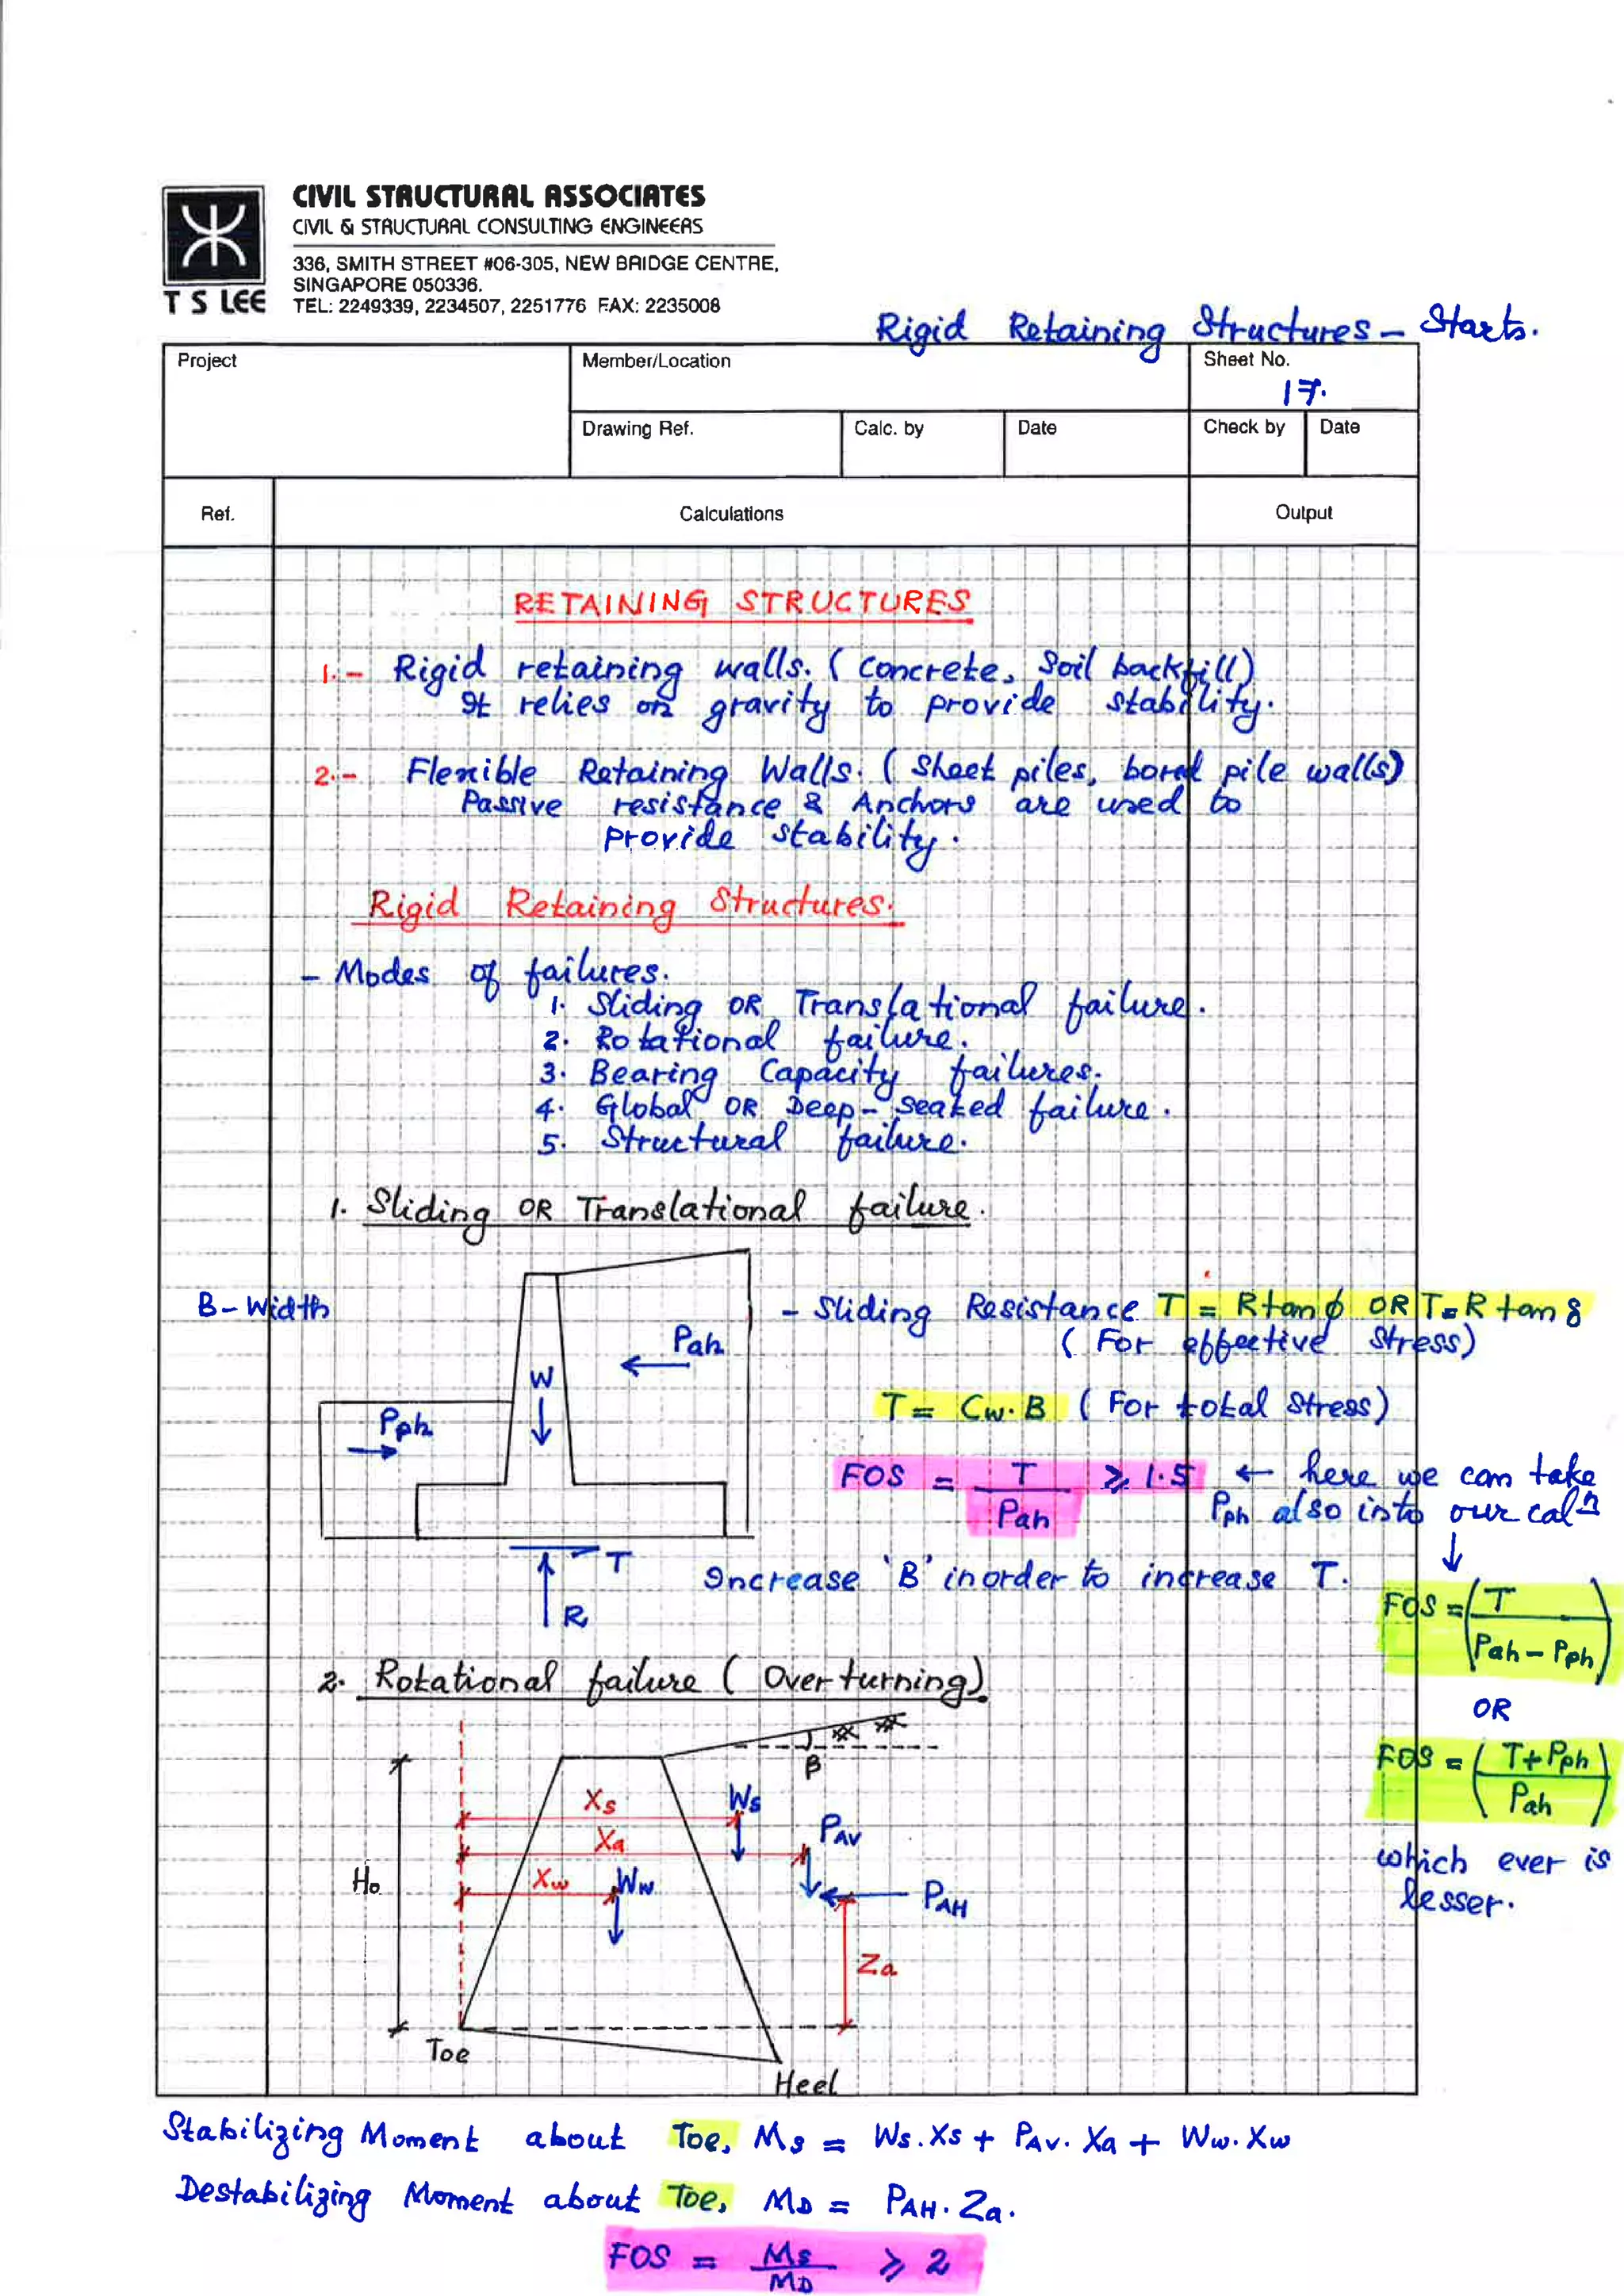 CIVIL STRUCTURAL ASSOCIATES
CIVIL & STRUCTURAL CONSULTING ENGINEERS
336, SMITH STREET #06-305, NEW BRIDGE CENTRE,
SINGAPORE 050336.
T S LEE
TEL: 2249339, 2234507, 2251776 FAX: 2235008
Rigid Retaining Structures - Starts.
Project
Member/Location
Sheet No.
17.
Drawing Ref.
Calc. by
Date
Check by
Date
Ref.
Calculations
Output
RETAINING STRUCTURES
1.- Rigid retaining walls. ( Concrete, Soil backfill)
It relies on gravity to provide stability.
2.- Flexible Retaining Walls. ( Sheet piles, bored pile walls)
Passive resistance & Anchors are used to
provide stability.
Rigid Retaining Structures.
- Modes of failures.
1. Sliding OR Translational failure.
2. Rotational failure.
3. Bearing Capacity failures.
4. Global OR Deep-seated failure.
5. Structural failure.
1. Sliding OR Translational failure.
B - Width
- Sliding Resistance T = R tan φ OR T = R tan δ
( For effective stress)
Pah
W
Pph
T = Cw. B ( For total stress)
FOS = T / Pah ⩾ 1.5 ← here we can take
Pph also into our calⁿ
↓
T
R
Increase 'B' inorder to increase T.
FOS = ( T / Pah - Pph )
OR
FOS = ( T + Pph / Pah )
which ever is
lesser.
2. Rotational failure ( Over turning).
β
Xs
Ws
Xa
PAV
Ho
Xw
Ww
PAH
Za
Toe
Heel
Stabilizing Moment about Toe, Ms = Ws . Xs + PAV . Xa + Ww . Xw
Destabilizing Moment about Toe, MD = PAH . Za.
FOS = Ms / MD ⩾ 2